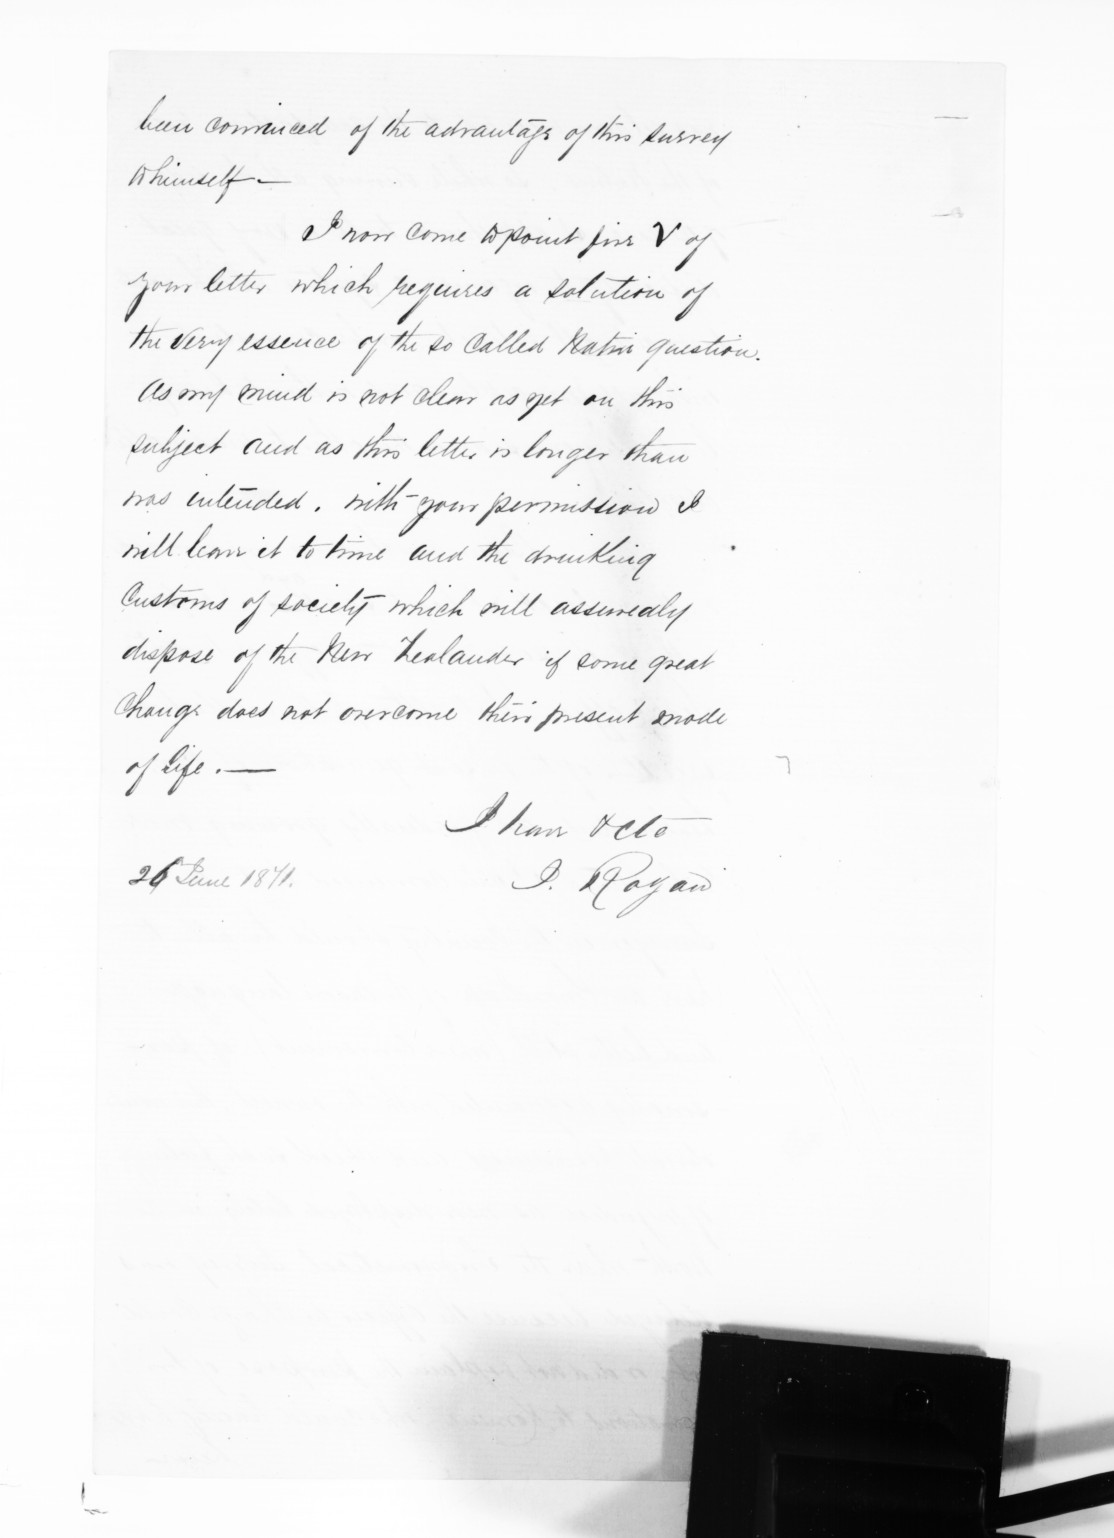 been convinced of the advantage of this survey
to himself —
I now come to point five V of
your letter which requires a solution of
the very essence of the so called Native question.
As my mind is not clear as yet on this
subject and as this letter is longer than
was intended, with your permission I
will leave it to time and the drinking
customs of society which will assuredly
dispose of the New Zealander if some great
change does not overcome their present mode
of life. —
I have &cte
26 June 1871. J. Rogan